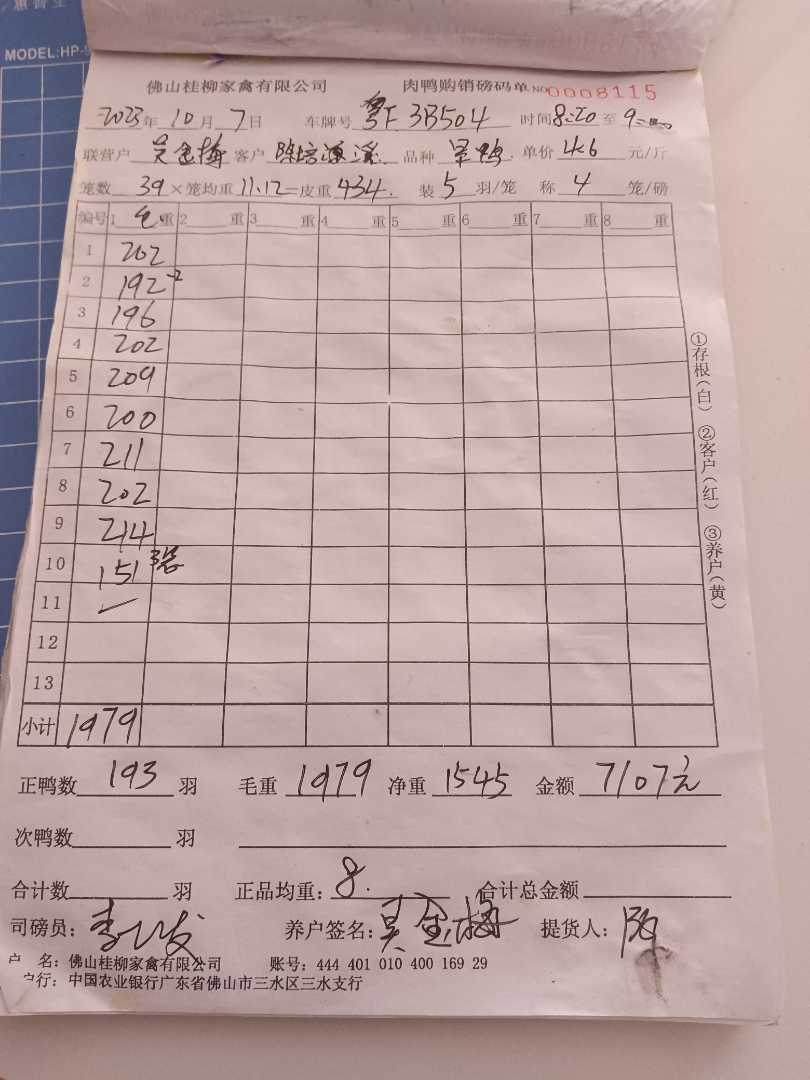 MODEL:HP-
佛山桂柳家禽有限公司 肉鸭购销磅码单 NO 0008115
2023年 10月 7日 车牌号 粤F 3B504 时间 8:20 至 9
联营户 吴金梅 客户 品种 鸭 单价 4.6 元/斤
笼数 39 ×笼均重 11.12 =皮重 434. 装 5 羽/笼 称 4 笼/磅
编号 1 毛 重 2 重 3 重 4 重 5 重 6 重 7 重 8 重
1 202
2 192 -2
3 196
4 202
5 209
6 200
7 211
8 202
9 214
10 151 3笼
11
12
13
小计 1979
正鸭数 193 羽 毛重 1979 净重 1545 金额 7107元
次鸭数 羽
合计数 羽 正品均重: 8. 合计总金额
司磅员: 李 养户签名: 吴金梅 提货人:
户 名: 佛山桂柳家禽有限公司 账号: 444 401 010 400 169 29
户行: 中国农业银行广东省佛山市三水区三水支行
①存根(白) ②客户(红) ③养户(黄)